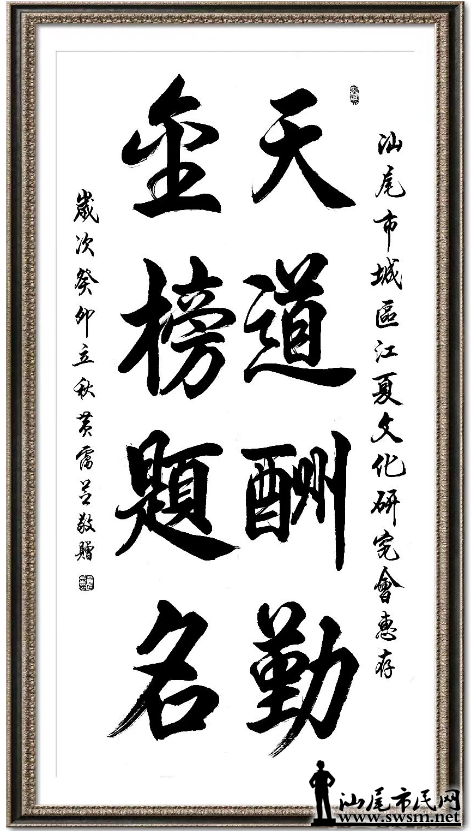 汕尾市城區江夏文化研究會惠存
天道酬勤
金榜題名
歲次癸卯立秋黃雷敬贈
汕尾市民网
www.swsm.net